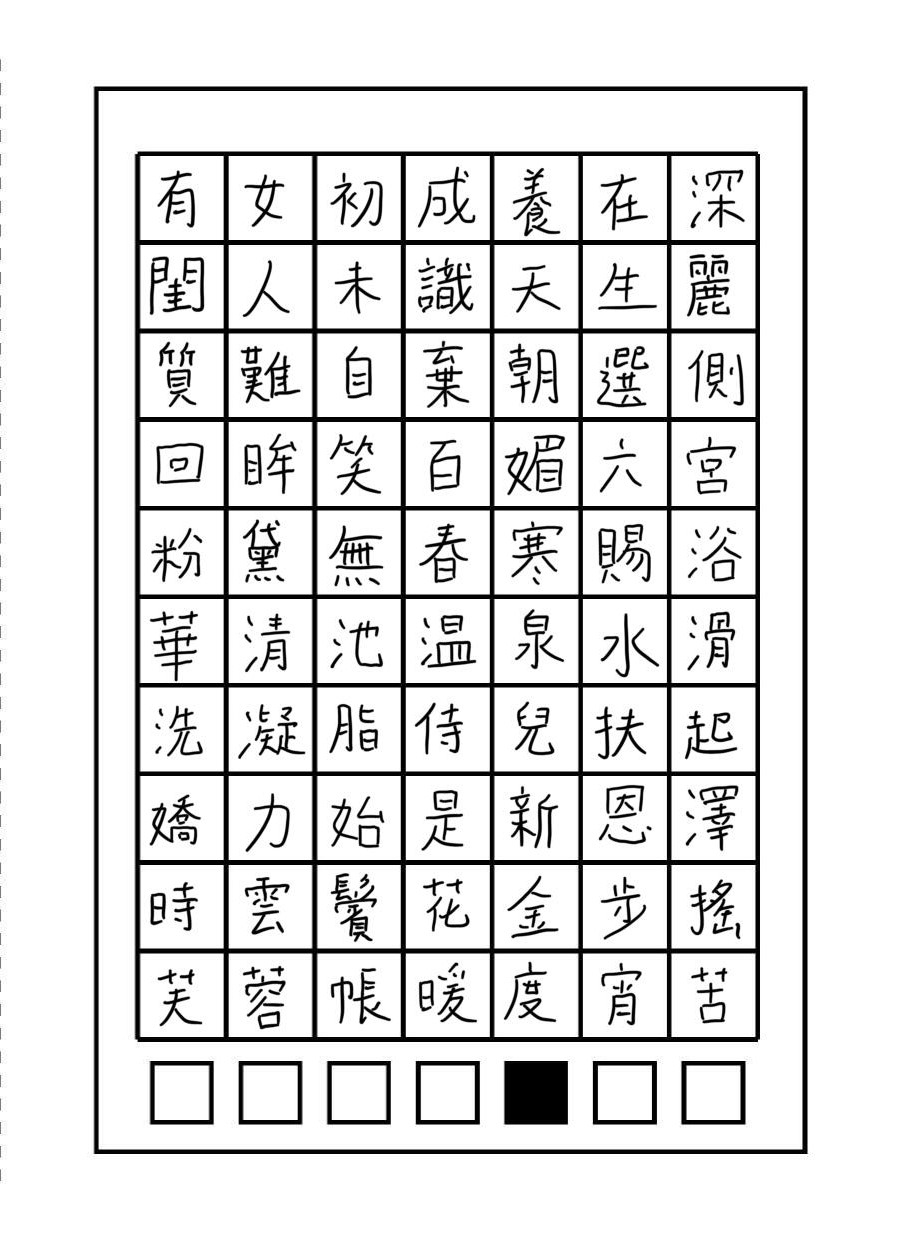 有女初成養在深
閨人未識天生麗
質難自棄朝選側
回眸笑百媚六宮
粉黛無春寒賜浴
華清池温泉水滑
洗凝脂侍兒扶起
嬌力始是新恩澤
時雲鬢花金步搖
芙蓉帳暖度宵苦